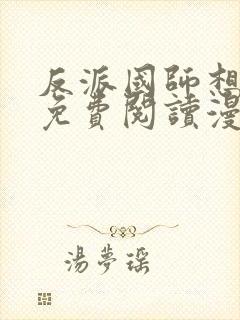 反派國師想
免費閱讀漫
湯夢瑶